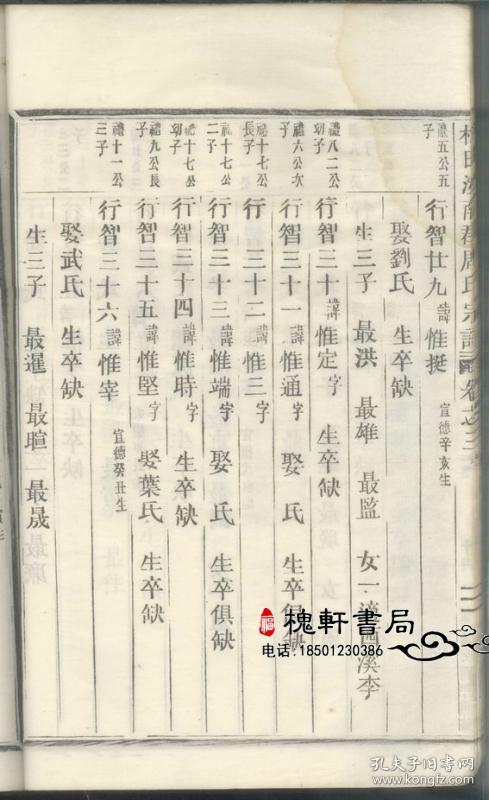 汝南郡周氏宗譜 卷之三
禮五公五子
行智廿九 諱惟挺 宣德辛亥生
娶劉氏 生卒缺
生三子 最洪 最雄 最監 女一適西溪李
禮八二公幼子
行智三十 諱惟定 字 生卒缺
禮六公次子
行智三十一 諱惟通 字 娶 氏 生卒俱缺
禮十七公長子
行智三十二 諱惟三 字
禮十七公二子
行智三十三 諱惟端 字 娶 氏 生卒俱缺
禮十七公幼子
行智三十四 諱惟時 字 生卒缺
禮九公長子
行智三十五 諱惟堅 字 娶葉氏 生卒缺
禮十一公三子
行智三十六 諱惟宰 宣德癸丑生
娶武氏 生卒缺
生三子 最暹 最暄 最晟
槐軒書局
电话:18501230386
孔夫子旧书网
www.kongfz.com